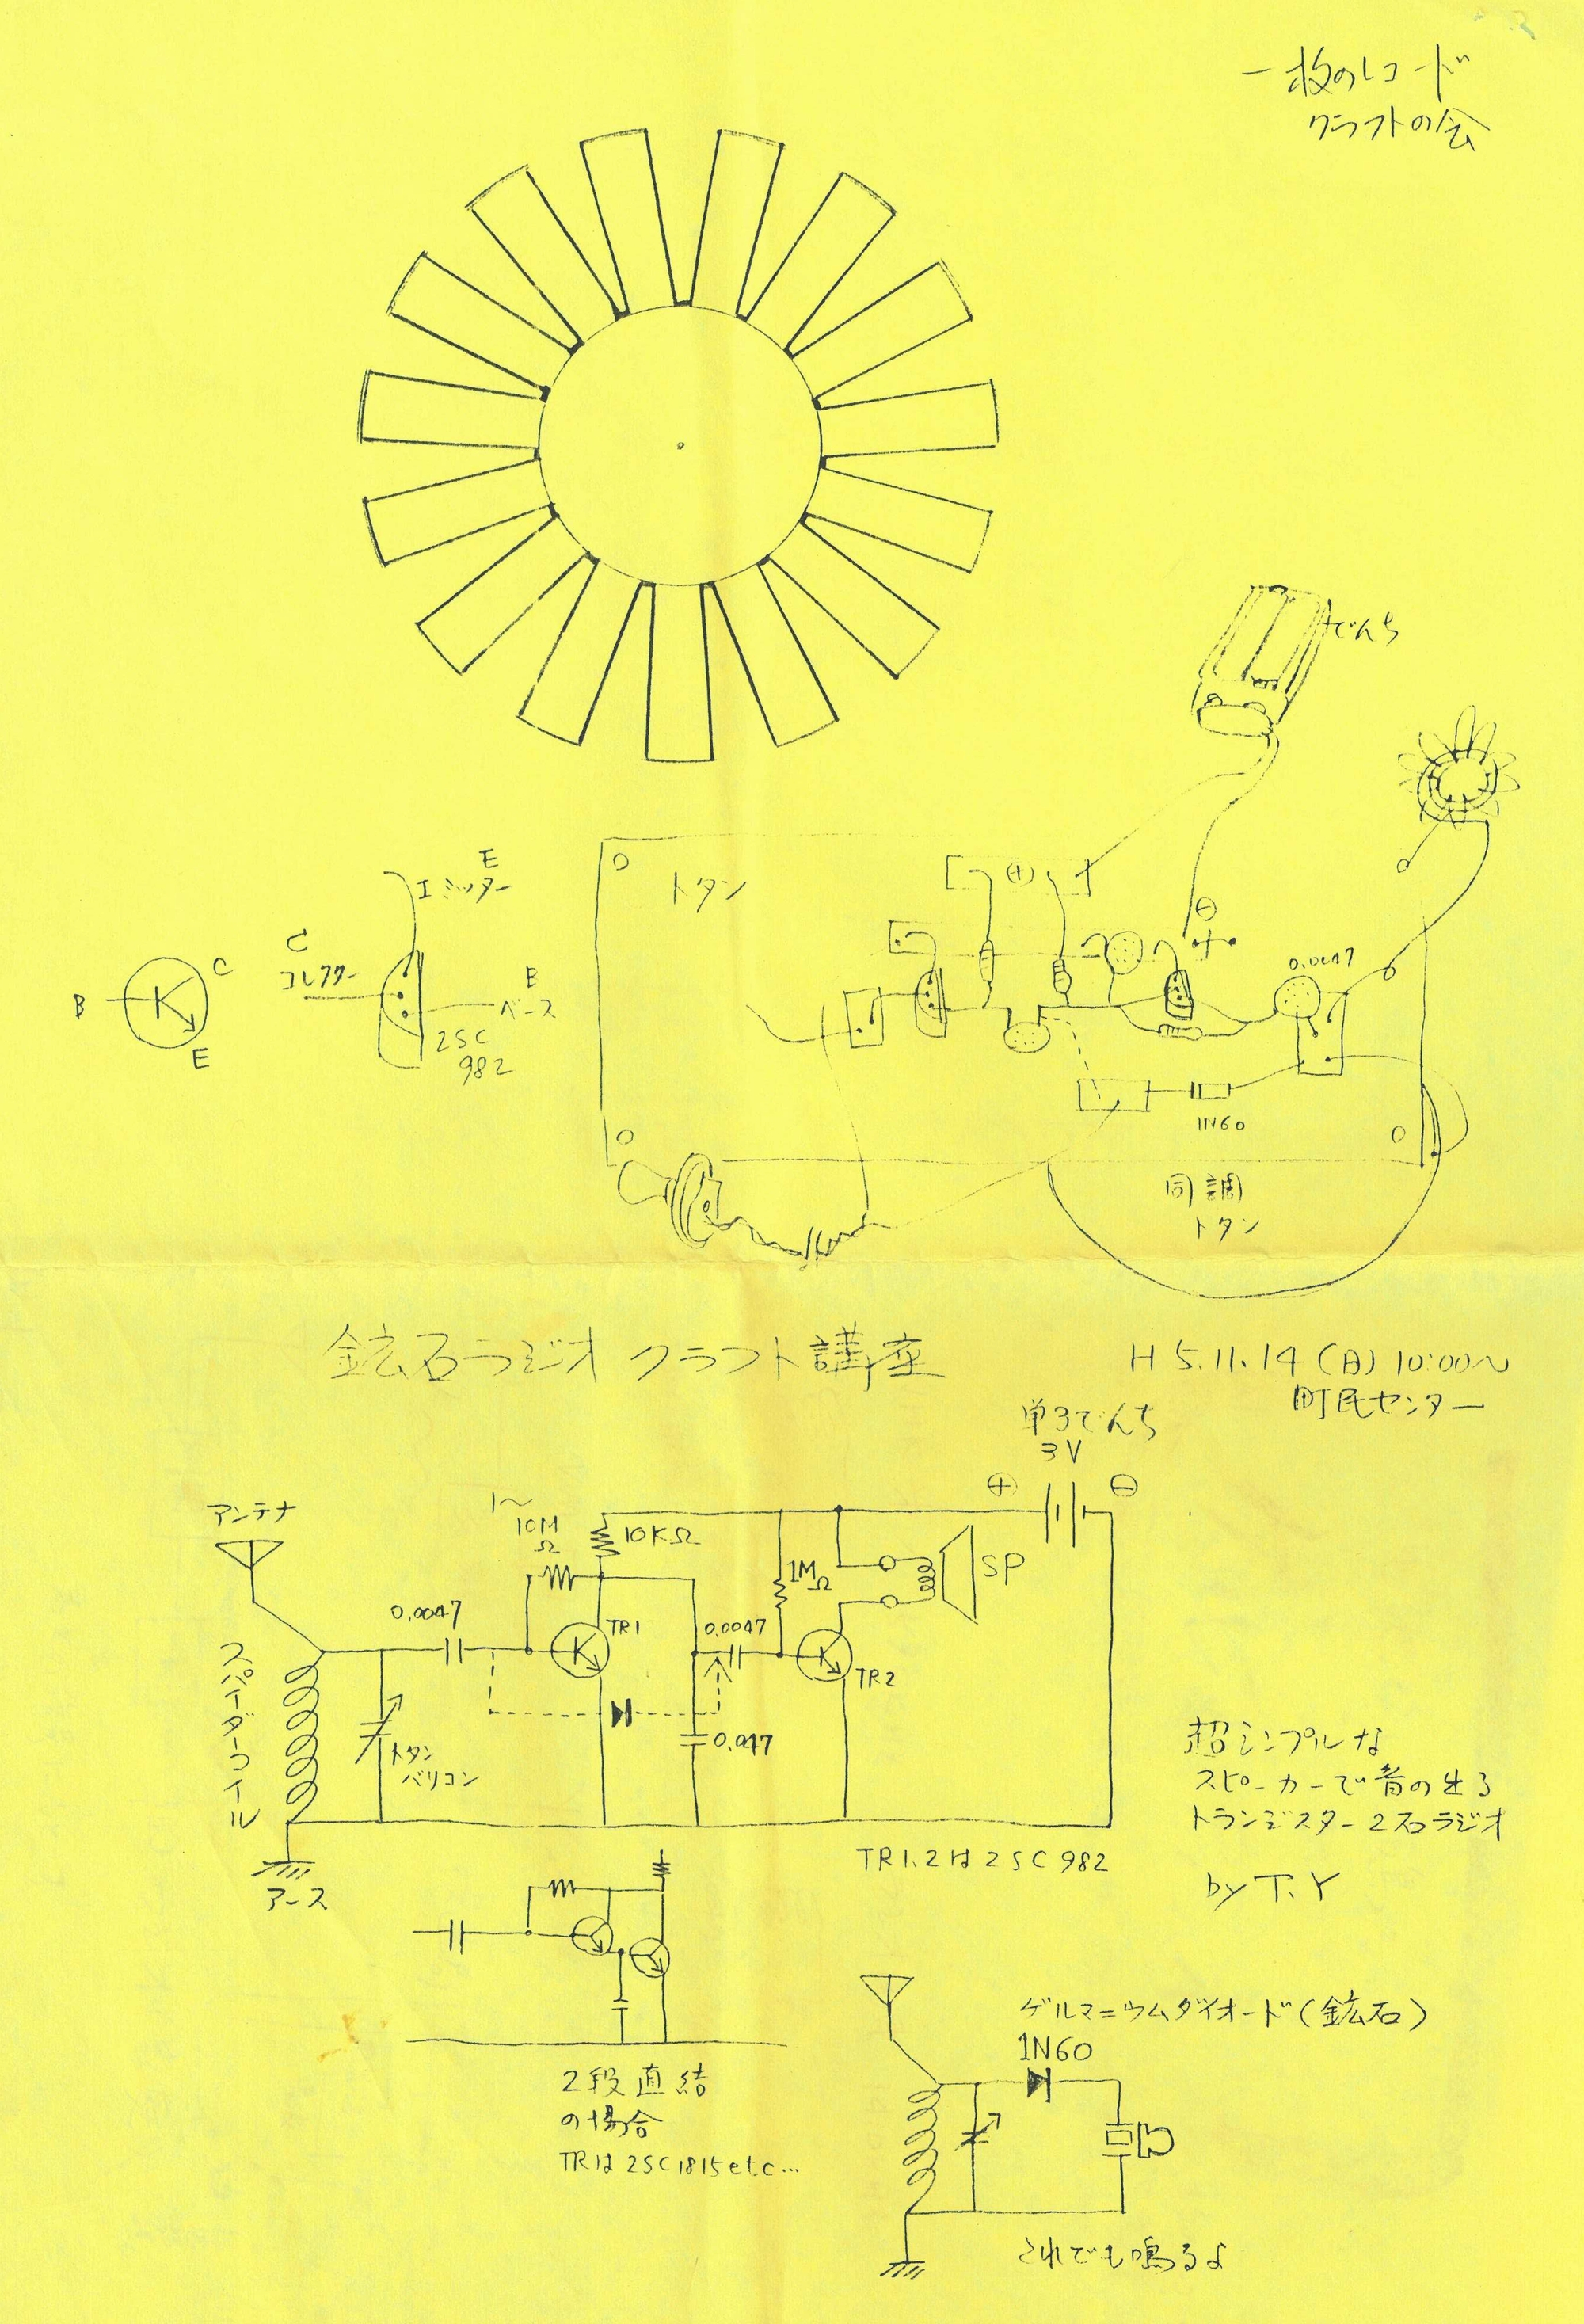 一枚のレコード
クラフトの会
でんち
E
エミッター
C
コレクター
B
ベース
2SC
982
B
C
E
トタン
⊕
⊖
0.0047
1N60
同調
トタン
鉱石ラジオ クラフト講座
H 5.11.14 (日) 10:00〜
町民センター
単3でんち
3V
⊕
⊖
アンテナ
1〜
10M
Ω
10KΩ
1MΩ
SP
0.0047
TR1
0.0047
TR2
スパイダーコイル
トタン
バリコン
0.047
アース
TR1.2は2SC982
超シンプルな
スピーカーで音の出る
トランジスター2石ラジオ
by T.Y
2段直結
の場合
TRは2SC1815etc...
ゲルマニウムダイオード(鉱石)
1N60
これでも鳴るよ